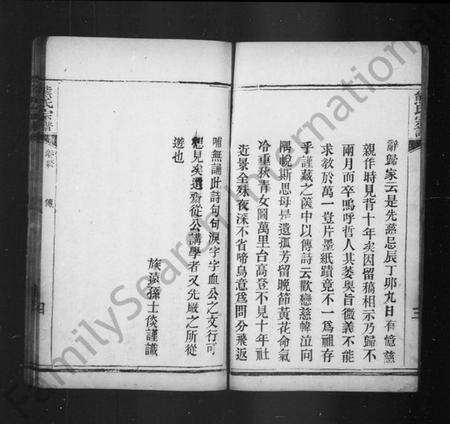 辭歸家云是先慈忌辰丁卯九日有憶慈
親作時見背十年矣因留稿相示乃歸不
兩月而卒嗚呼哲人其萎奥旨微義不能
求教於萬一豈片墨紙蹟竟不一爲祖存
乎謹藏之篋中以傳詩云歡戀慈幃泣向
隅蛻斯思母是遺孤芳留晚節黃花命氣
冷重秋青女圖萬里台高登不見十年社
近景全殊夜深不省啼烏意爲問分飛返
哺無誦此詩句句淚字字血公之文行可
槪見矣遺齋從公講學者又先嚴之所從
遊也
族遠孫士倓謹識
熊氏宗譜
傳
四
熊氏宗譜
三
FamilySearch International